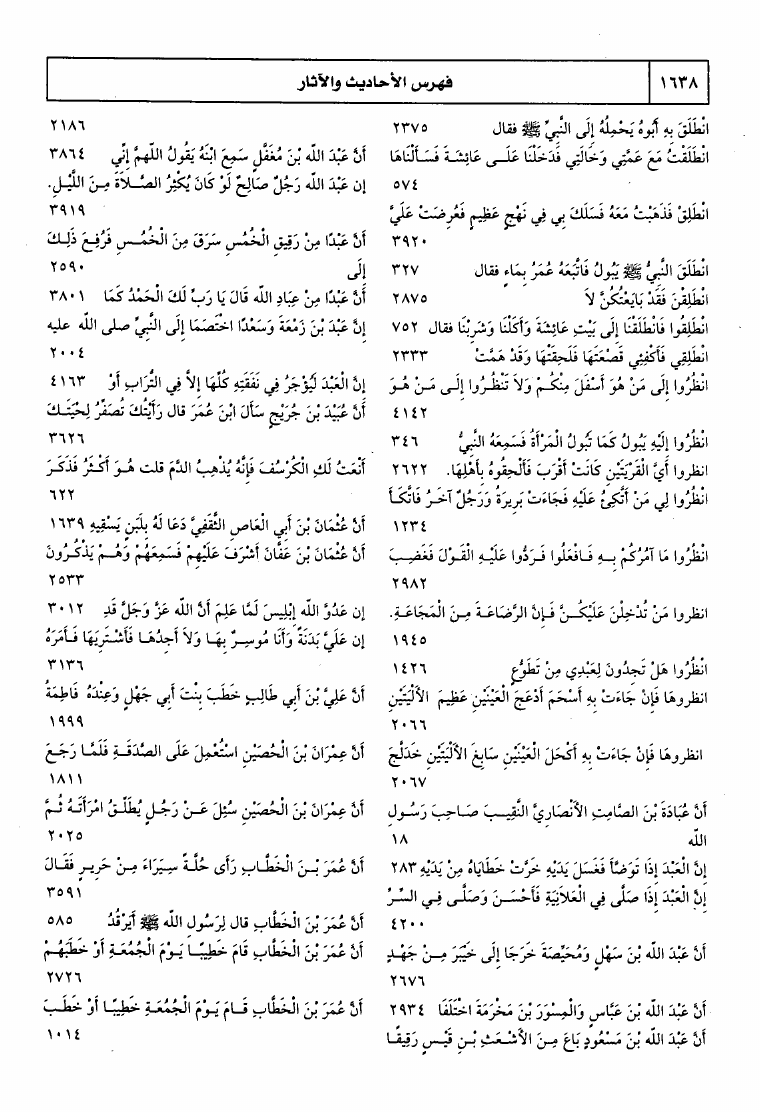 ١٦٣٨
فهرس الأحاديث والآثار
انْطَلَقَ بِهِ أَبُوهُ يَحْمِلُهُ إِلَى النَّبِيِّ ﷺ فقال ٢٣٧٥
انْطَلَقْتُ مَعَ عَمَّتِي وَخَالَتِي فَدَخَلْنَا عَلَـى عَائِشَةَ فَسَأَلْنَاهَا
٥٧٤
انْطَلِقْ فَذَهَبْتُ مَعَهُ فَسَلَكَ بِي فِي نَهْجٍ عَظِيمٍ فَعُرِضَتْ عَلَيَّ
٣٩٢٠
انْطَلَقَ النَّبِيُّ ﷺ يَبُولُ فَاتَّبَعَهُ عُمَرُ بِمَاءٍ فقال ٣٢٧
انْطَلِقْنَ فَقَدْ بَايَعْتُكُنَّ لاَ ٢٨٧٥
انْطَلِقُوا فَانْطَلَقْنَا إِلَى بَيْتِ عَائِشَةَ وَأَكَلْنَا وَشَرِبْنَا فقال ٧٥٢
انْطَلِقِي فَأَكْفِئِي قَصْعَتَهَا فَلَحِقَتْهَا وَقَدْ هَمَّتْ ٢٣٣٣
انْظُرُوا إِلَى مَنْ هُوَ أَسْفَلَ مِنْكُـمْ وَلاَ تَنْظُـرُوا إِلَـى مَـنْ هُـوَ
٤١٤٢
انْظُرُوا إِلَيْهِ يَبُولُ كَمَا تَبُولُ الْمَرْأَةُ فَسَمِعَهُ النَّبِيُّ ٣٤٦
انظروا أَيَّ الْقَرْيَتَيْنِ كَانَتْ أَقْرَبَ فَأَلْحِقُوهُ بِأَهْلِهَا. ٢٦٢٢
انْظُرُوا لِي مَنْ أَتَّكِئُ عَلَيْهِ فَجَاءَتْ بَرِيرَةُ وَرَجُلٌ آخَـرُ فَاتَّكَـأَ
١٢٣٤
انْظُرُوا مَا آمُرُكُمْ بِـهِ فَـافْعَلُوا فَـرَدُّوا عَلَيْـهِ الْقَـوْلَ فَغَضِبَ
٢٩٨٢
انظروا مَنْ تُدْخِلْنَ عَلَيْكُـنَّ فَـإِنَّ الرَّضَاعَـةَ مِـنَ الْمَجَاعَـةِ.
١٩٤٥
انْظُرُوا هَلْ تَجِدُونَ لِعَبْدِي مِنْ تَطَوُّعٍ ١٤٢٦
انظروهَا فَإِنْ جَاءَتْ بِهِ أَسْحَمَ أَدْعَجَ الْعَيْنَيْنِ عَظِيمَ الأَلْيَتَيْنِ
٢٠٦٦
انظروهَا فَإِنْ جَاءَتْ بِهِ أَكْحَلَ الْعَيْنَيْنِ سَابِغَ الأَلْيَتَيْنِ خَدَلَّجَ
٢٠٦٧
أَنَّ عُبَادَةَ بْنَ الصَّامِتِ الأَنْصَارِيَّ النَّقِيـبَ صَـاحِبَ رَسُـولِ
اللَّه ١٨
إِنَّ الْعَبْدَ إِذَا تَوَضَّأَ فَغَسَلَ يَدَيْهِ خَرَّتْ خَطَايَاهُ مِنْ يَدَيْهِ ٢٨٣
إِنَّ الْعَبْدَ إِذَا صَلَّى فِي الْعَلاَنِيَةِ فَأَحْسَـنَ وَصَلَّـى فِـي السِّـرِّ
٤٢٠٠
أَنَّ عَبْدَ اللَّه بْنَ سَهْلٍ وَمُحَيِّصَةَ خَرَجَا إِلَى خَيْبَرَ مِـنْ جَهْـدٍ
٢٦٧٦
أَنَّ عَبْدَ اللَّه بْنَ عَبَّاسٍ وَالْمِسْوَرَ بْنَ مَخْرَمَةَ اخْتَلَفَا ٢٩٣٤
أَنَّ عَبْدَ اللَّه بْنَ مَسْعُودٍ بَاعَ مِـنَ الأَشْـعَـثِ بْـنِ قَيْـسٍ رَقِيقًـا
٢١٨٦
أَنَّ عَبْدَ اللَّه بْنَ مُغَفَّلٍ سَمِعَ ابْنَهُ يَقُولُ اللَّهمَّ إِنِّي ٣٨٦٤
إن عَبْدَ اللَّه رَجُلٌ صَالِحٌ لَوْ كَانَ يُكْثِرُ الصَّـلاَةَ مِـنَ اللَّيْـلِ.
٣٩١٩
أَنَّ عَبْدًا مِنْ رَقِيقِ الْخُمُسِ سَرَقَ مِنَ الْخُمُـسِ فَرُفِـعَ ذَلِـكَ
إِلَى ٢٥٩٠
أَنَّ عَبْدًا مِنْ عِبَادِ اللَّه قَالَ يَا رَبِّ لَكَ الْحَمْدُ كَمَا ٣٨٠١
إِنَّ عَبْدَ بْنَ زَمْعَةَ وَسَعْدًا اخْتَصَمَا إِلَى النَّبِيِّ صلى اللَّه عليه
٢٠٠٤
إِنَّ الْعَبْدَ لَيُؤْجَرُ فِي نَفَقَتِهِ كُلِّهَا إِلاَّ فِي التُّرَابِ أَوْ ٤١٦٣
أَنَّ عُبَيْدَ بْنَ جُرَيْجٍ سَأَلَ ابْنَ عُمَرَ قال رَأَيْتُكَ تُصَفِّرُ لِحْيَتَـكَ
٣٦٢٦
أَنْعَتُ لَكِ الْكُرْسُفَ فَإِنَّهُ يُذْهِبُ الدَّمَ قلت هُـوَ أَكْثَـرُ فَذَكَـرَ
٦٢٢
أَنَّ عُثْمَانَ بْنَ أَبِي الْعَاصِ الثَّقَفِيَّ دَعَا لَهُ بِلَبَنٍ يَسْقِيهِ ١٦٣٩
أَنَّ عُثْمَانَ بْنَ عَفَّانَ أَشْرَفَ عَلَيْهِمْ فَسَمِعَهُمْ وَهُـمْ يَذْكُـرُونَ
٢٥٣٣
إن عَدُوَّ اللَّه إِبْلِيسَ لَمَّا عَلِمَ أَنَّ اللَّه عَزَّ وَجَلَّ قَدِ ٣٠١٢
إن عَلَيَّ بَدَنَةً وَأَنَا مُوسِـرٌ بِهَـا وَلاَ أَجِدُهَـا فَأَشْتَرِيَهَا فَـأَمَرَهُ
٣١٣٦
أَنَّ عَلِيَّ بْنَ أَبِي طَالِبٍ خَطَبَ بِنْتَ أَبِي جَهْلٍ وَعِنْدَهُ فَاطِمَةُ
١٩٩٩
أَنَّ عِمْرَانَ بْنَ الْحُصَيْنِ اسْتُعْمِلَ عَلَى الصَّدَقَـةِ فَلَمَّـا رَجَـعَ
١٨١١
أَنَّ عِمْرَانَ بْنَ الْحُصَيْنِ سُئِلَ عَـنْ رَجُـلٍ يُطَلِّـقُ امْرَأَتَـهُ ثُـمَّ
٢٠٢٥
أَنَّ عُمَرَ بْـنَ الْخَطَّـابِ رَأَى حُلَّـةً سِـيَرَاءَ مِـنْ حَرِيـرٍ فَقَـالَ
٣٥٩١
أَنَّ عُمَرَ بْنَ الْخَطَّابِ قال لِرَسُولِ اللَّه ﷺ أَيَرْقُدُ ٥٨٥
أَنَّ عُمَرَ بْنَ الْخَطَّابِ قَامَ خَطِيبًـا يَـوْمَ الْجُمُعَـةِ أَوْ خَطَبَهُـمْ
٢٧٢٦
أَنَّ عُمَرَ بْنَ الْخَطَّابِ قَـامَ يَـوْمَ الْجُمُعَـةِ خَطِيبًـا أَوْ خَطَـبَ
١٠١٤